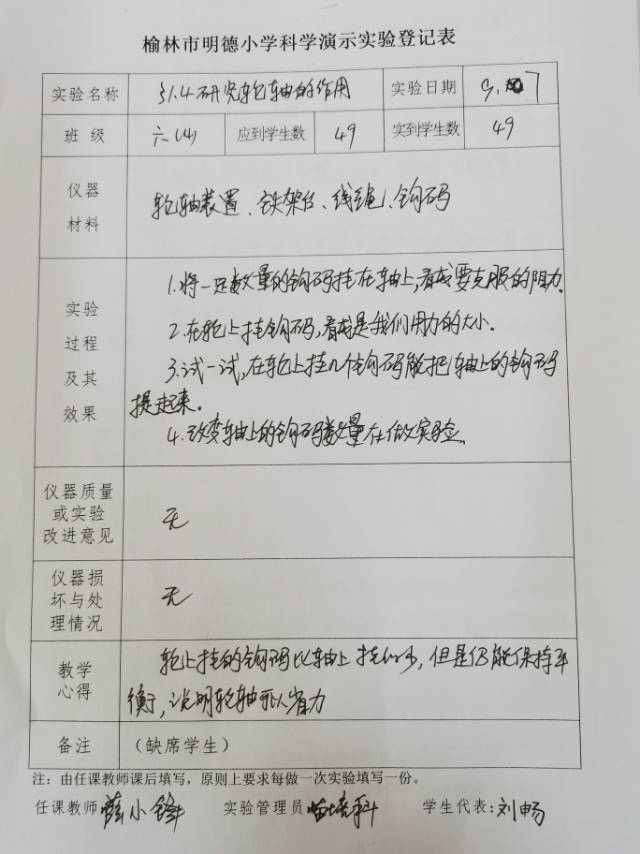 榆林市明德小学科学演示实验登记表
实验名称 31.4研究轮轴的作用 实验日期 9. 7
班 级 六(4) 应到学生数 49 实到学生数 49
仪器
材料
轮轴装置、铁架台、线绳、钩码
实验
过程
及其
效果
1.将一定数量的钩码挂在轴上,看成要克服的阻力.
2.在轮上挂钩码,看成是我们用力的大小.
3.试一试,在轮上挂几个钩码能把轴上的钩码
提起来.
4.改变轴上的钩码数量在做实验
仪器质量
或实验
改进意见
无
仪器损
坏与处
理情况
无
教学
心得
轮上挂的钩码比轴上挂的少,但是仍能保持平
衡,说明轮轴可以省力
备注 (缺席学生)
注:由任课教师课后填写,原则上要求每做一次实验填写一份。
任课教师 小锋 实验管理员 培科 学生代表:刘畅